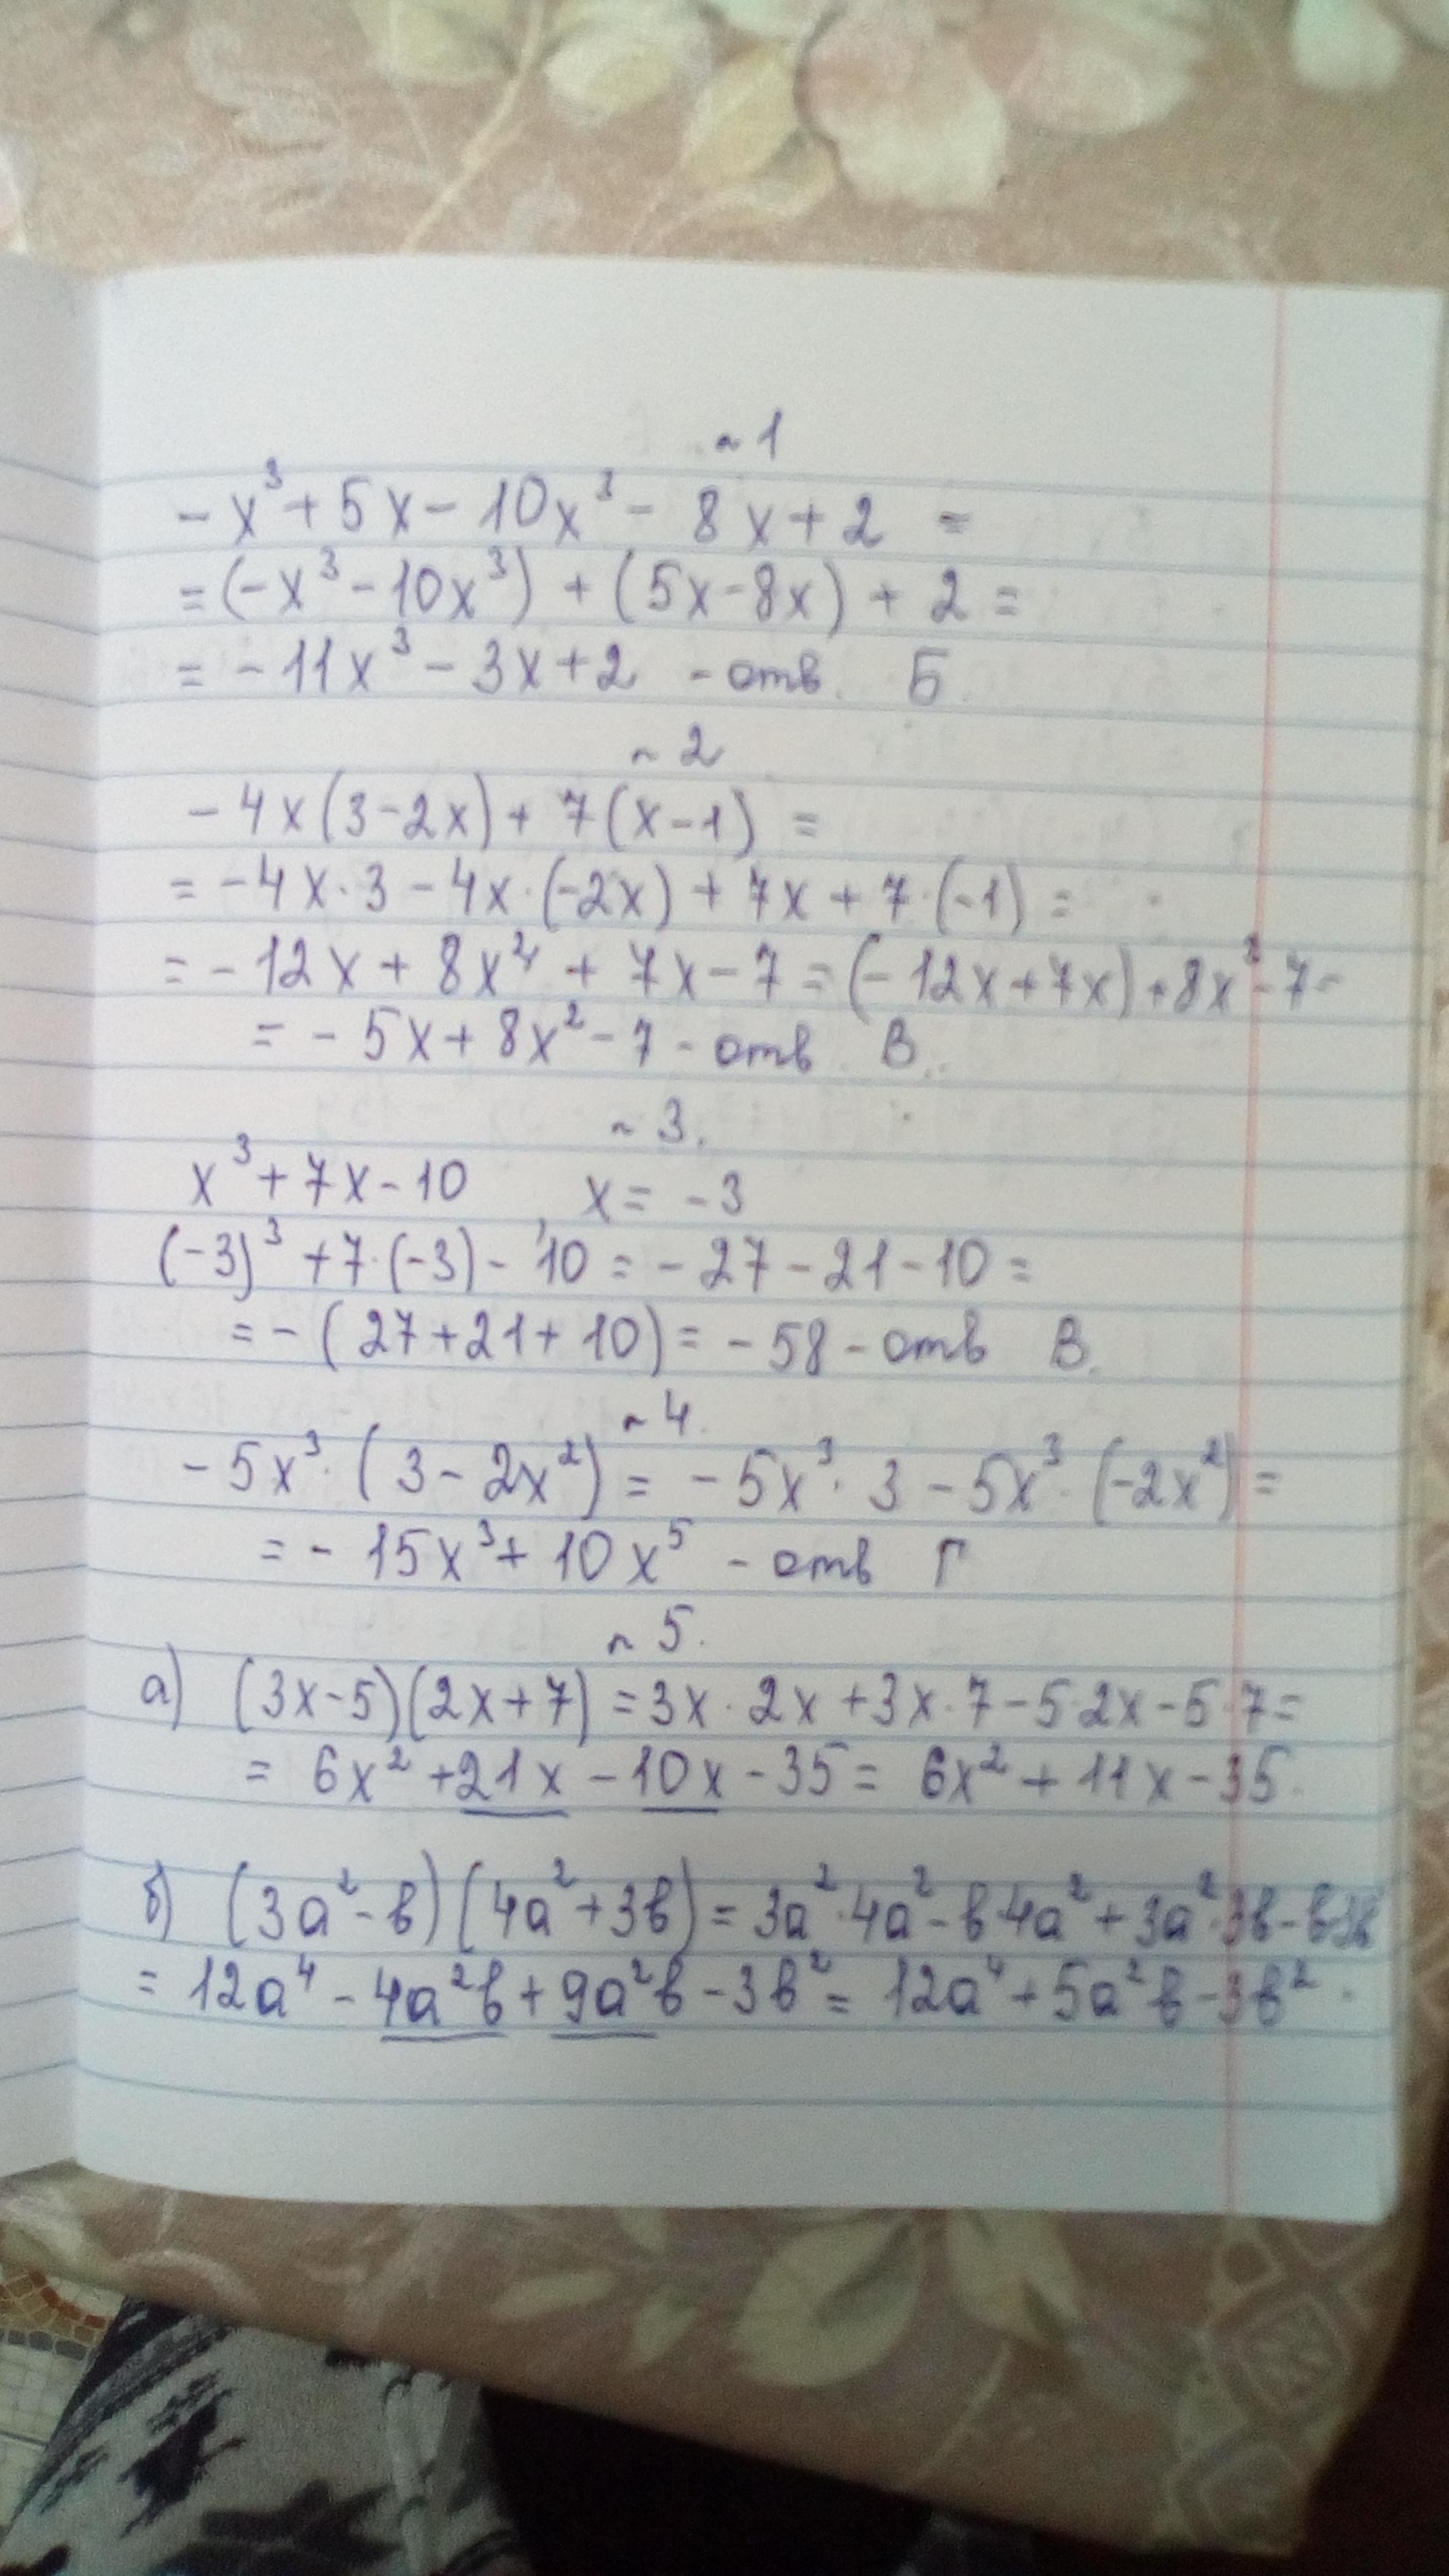 ~ 1
- x³ + 5x - 10x³ - 8x + 2 =
= (-x³ - 10x³) + (5x - 8x) + 2 =
= - 11x³ - 3x + 2 - отв. Б.
~ 2
- 4x(3 - 2x) + 7(x - 1) =
= - 4x · 3 - 4x · (-2x) + 7x + 7 · (-1) =
= - 12x + 8x² + 7x - 7 = (- 12x + 7x) + 8x² - 7 =
= - 5x + 8x² - 7 - отв. В.
~ 3.
x³ + 7x - 10 , x = - 3
(-3)³ + 7 · (-3) - 10 = - 27 - 21 - 10 =
= - (27 + 21 + 10) = - 58 - отв В.
~ 4.
- 5x³ · (3 - 2x²) = - 5x³ · 3 - 5x³ · (-2x²) =
= - 15x³ + 10x⁵ - отв Г
~ 5.
а) (3x - 5)(2x + 7) = 3x · 2x + 3x · 7 - 5 · 2x - 5 · 7 =
= 6x² + 21x - 10x - 35 = 6x² + 11x - 35.
б) (3a² - b)(4a² + 3b) = 3a² · 4a² - b · 4a² + 3a² · 3b - b · 3b
= 12a⁴ - 4a²b + 9a²b - 3b² = 12a⁴ + 5a²b - 3b².